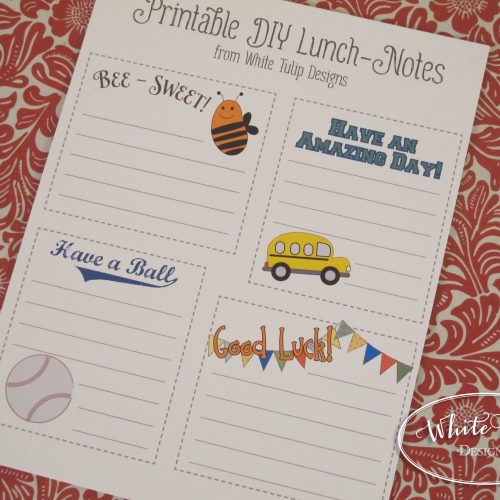 Printable DIY Lunch-Notes
from White Tulip Designs
Bee - Sweet!
Have an
Amazing Day!
Have a Ball
Good Luck!
White
Design